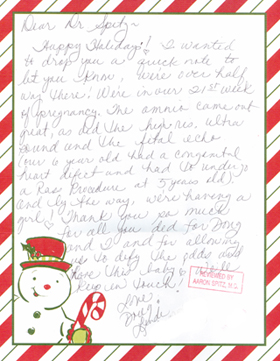 Dear Dr Spitz-
Happy Holidays! I wanted
to drop you a quick note to
let you know, we're over half
way there! We're in our 21st week
of pregnancy. The amnio came out
great, as did the high res. ultra
sound and the fetal echo
(our 6 year old had a congenital
heart defect and had to undergo
a Ross Procedure at 5 years old).
And by the way, we're having a
girl! Thank you so much
for all you did for Doug
and I and for allowing
us to defy the odds and
have this baby.
keep in touch!
Love,
REVIEWED BY
AARON SPITZ, M.D.